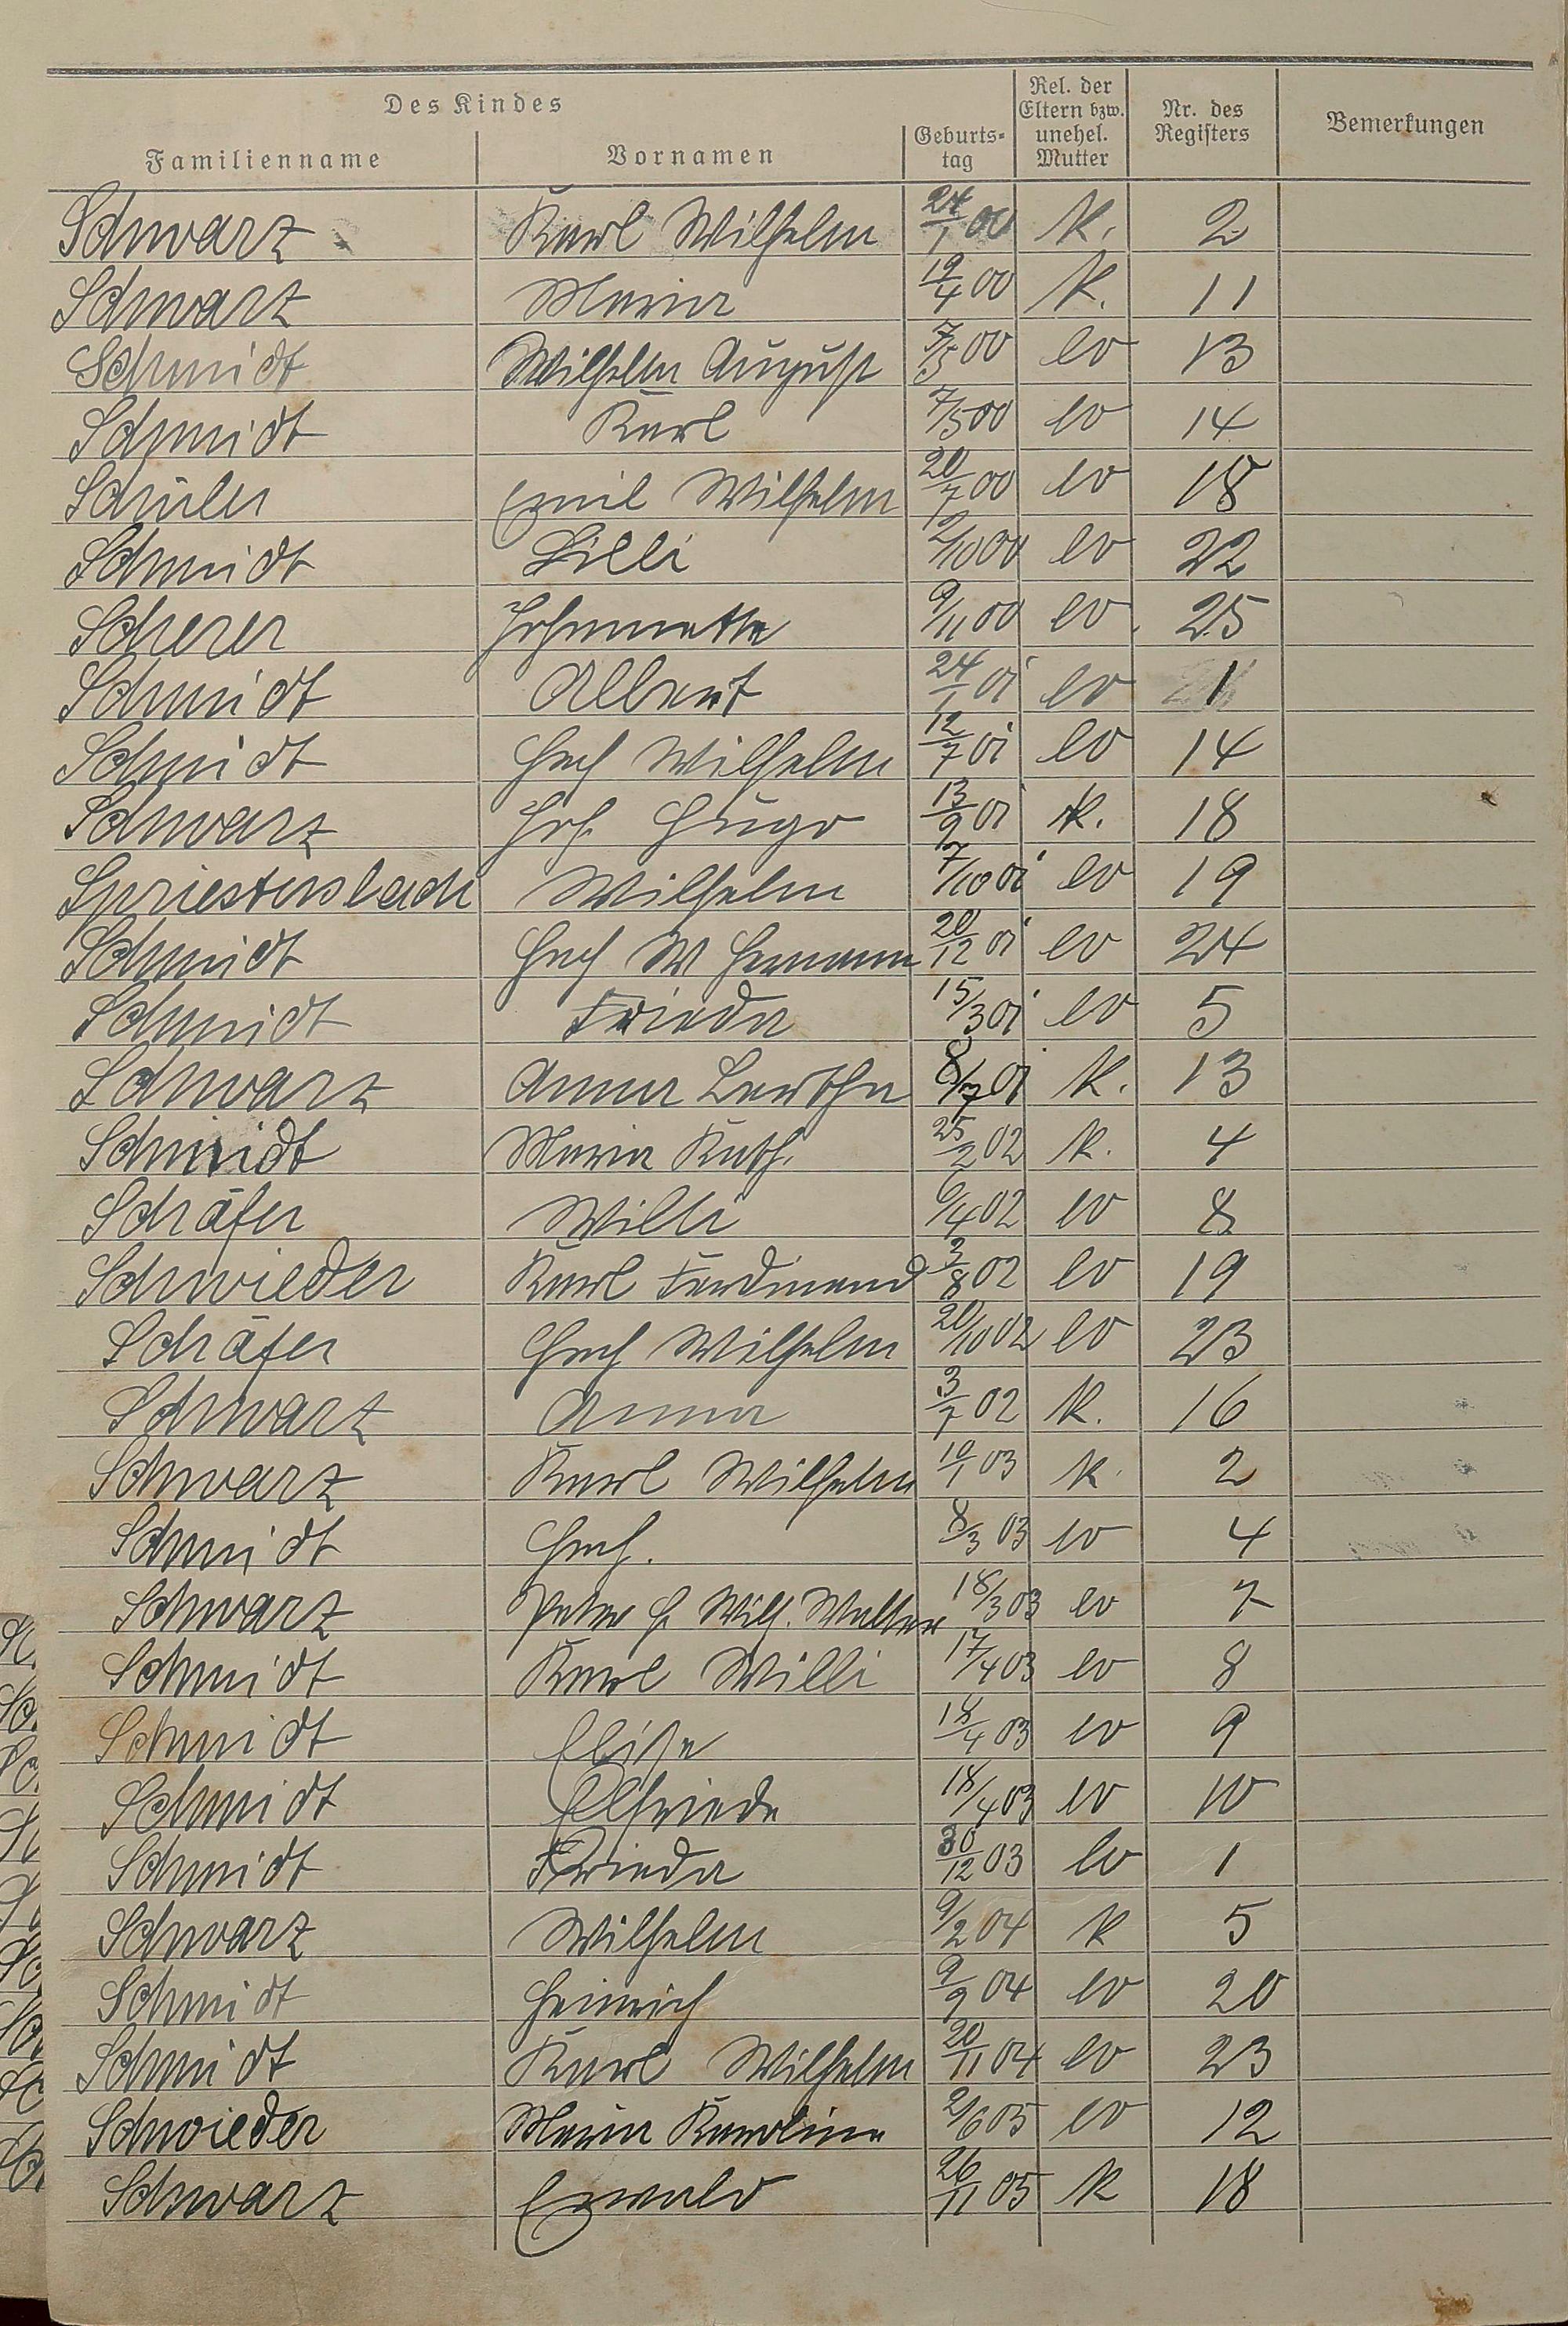 Des Kindes
Familienname Vornamen Geburts-tag Rel. der Eltern bzw. unehel. Mutter Nr. des Registers Bemerkungen
Schwarz Karl Wilhelm 24/1 00 K. 2
Schwarz Maria 19/4 00 K. 11
Schmidt Wilhelm August 7/5 00 ev 13
Schmidt Karl 7/5 00 ev 14
Schüler Emil Wilhelm 20/7 00 ev 18
Schmidt Lilli 12/10 00 ev 22
Scherer 9/11 00 ev 25
Schmidt Albert 24/1 01 ev 1
Schmidt Hch Wilhelm 12/7 01 ev 14
Schwarz Joh. Hugo 13/9 01 K. 18
Spriestersbach Wilhelm 7/10 01 ev 19
Schmidt Hch W Hermann 20/12 01 ev 24
Schmidt Frieda 15/3 01 ev 5
Schwarz Anna Bertha 8/7 01 K. 13
Schmidt Maria Kath. 25/2 02 K. 4
Schäfer Willi 6/4 02 ev 8
Schwieder Karl Ferdinand 3/8 02 ev 19
Schäfer Hch Wilhelm 20/10 02 ev 23
Schwarz Anna 3/7 02 K. 16
Schwarz Karl Wilhelm 10/1 03 K 2
Schmidt Hch. 8/3 03 ev 4
Schwarz Peter H. Wilh. Walter 18/3 03 ev 7
Schmidt Karl Willi 17/4 03 ev 8
Schmidt Elise 18/4 03 ev 9
Schmidt Elfriede 18/4 03 ev 10
Schmidt Frieda 30/12 03 ev 1
Schwarz Wilhelm 9/2 04 K 5
Schmidt Heinrich 9/9 04 ev 20
Schmidt Karl Wilhelm 20/11 04 ev 23
Schwieder Maria Karoline 2/6 05 ev 12
Schwarz Ewald 26/11 05 K 18